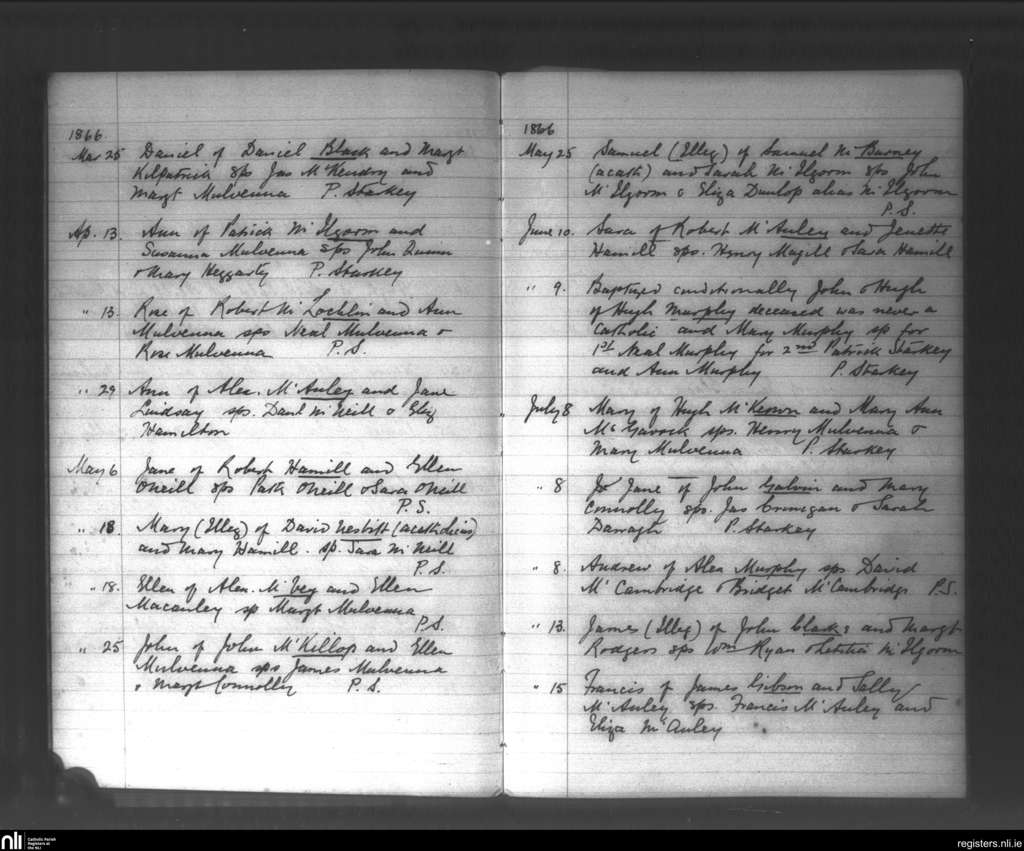 1866
Mar 25 Daniel of Daniel Black and Margt
Kilpatrick sps Jas McKendry and
Margt Mulvenna P. Starkey
Ap. 13. Ann of Patrick McIlgorm and
Susanna Mulvenna sps John Quinn
& Mary Heggarty P. Starkey
" 13. Rose of Robert McLochlin and Ann
Mulvenna sps Neal Mulvenna &
Rose Mulvenna P. S.
" 29 Ann of Alex. McAuley and Jane
Lindsay sps. Danl McNeill & Eliz
Hamilton
May 6 Jane of Robert Hamill and Ellen
O'Neill sps Patk O'Neill & Sara O'Neill
P. S.
" 18. Mary (Illeg) of David Nesbitt (acatholicus)
and Mary Hamill. sp. Sara McNeill
P. S.
" 18. Ellen of Alex. McVey and Ellen
Macauley sp Margt Mulvenna
P.S.
" 25 John of John McKillop and Ellen
Mulvenna sps James Mulvenna
" Margt Connolly P. S.
1866
May 25 Samuel (Illeg) of Samuel McBurney
(acath) and Sarah McIlgorm sps John
McIlgorm & Eliza Dunlop alias McIlgorm
P. S.
June 10. Sara of Robert McAuley and Jenette
Hamill sps. Henry Magill & Sara Hamill
" 9. Baptized conditionally John & Hugh
of Hugh Murphy deceased was never a
Catholic and Mary Murphy sp for
1st Neal Murphy for 2nd Patrick Starkey
and Ann Murphy P. Starkey
July 8 Mary of Hugh McKeown and Mary Ann
McGavock sps. Henry Mulvenna &
Mary Mulvenna P. Starkey
" 8 Jane of John Galvin and Mary
Connolly sps. Jas Cronegan & Sarah
Darragh P. Starkey
" 8. Andrew of Alex Murphy sps David
McCambridge & Bridget McCambridge P.S.
" 13. James (Illeg) of John Clarke and Margt
Rodgers sps Wm Ryan & Letitia McIlgorm
" 15 Francis of James Gibson and Sally
McAuley sps. Francis McAuley and
Eliza McAuley
nli
Catholic Parish
Registers at
the NLI
registers.nli.ie